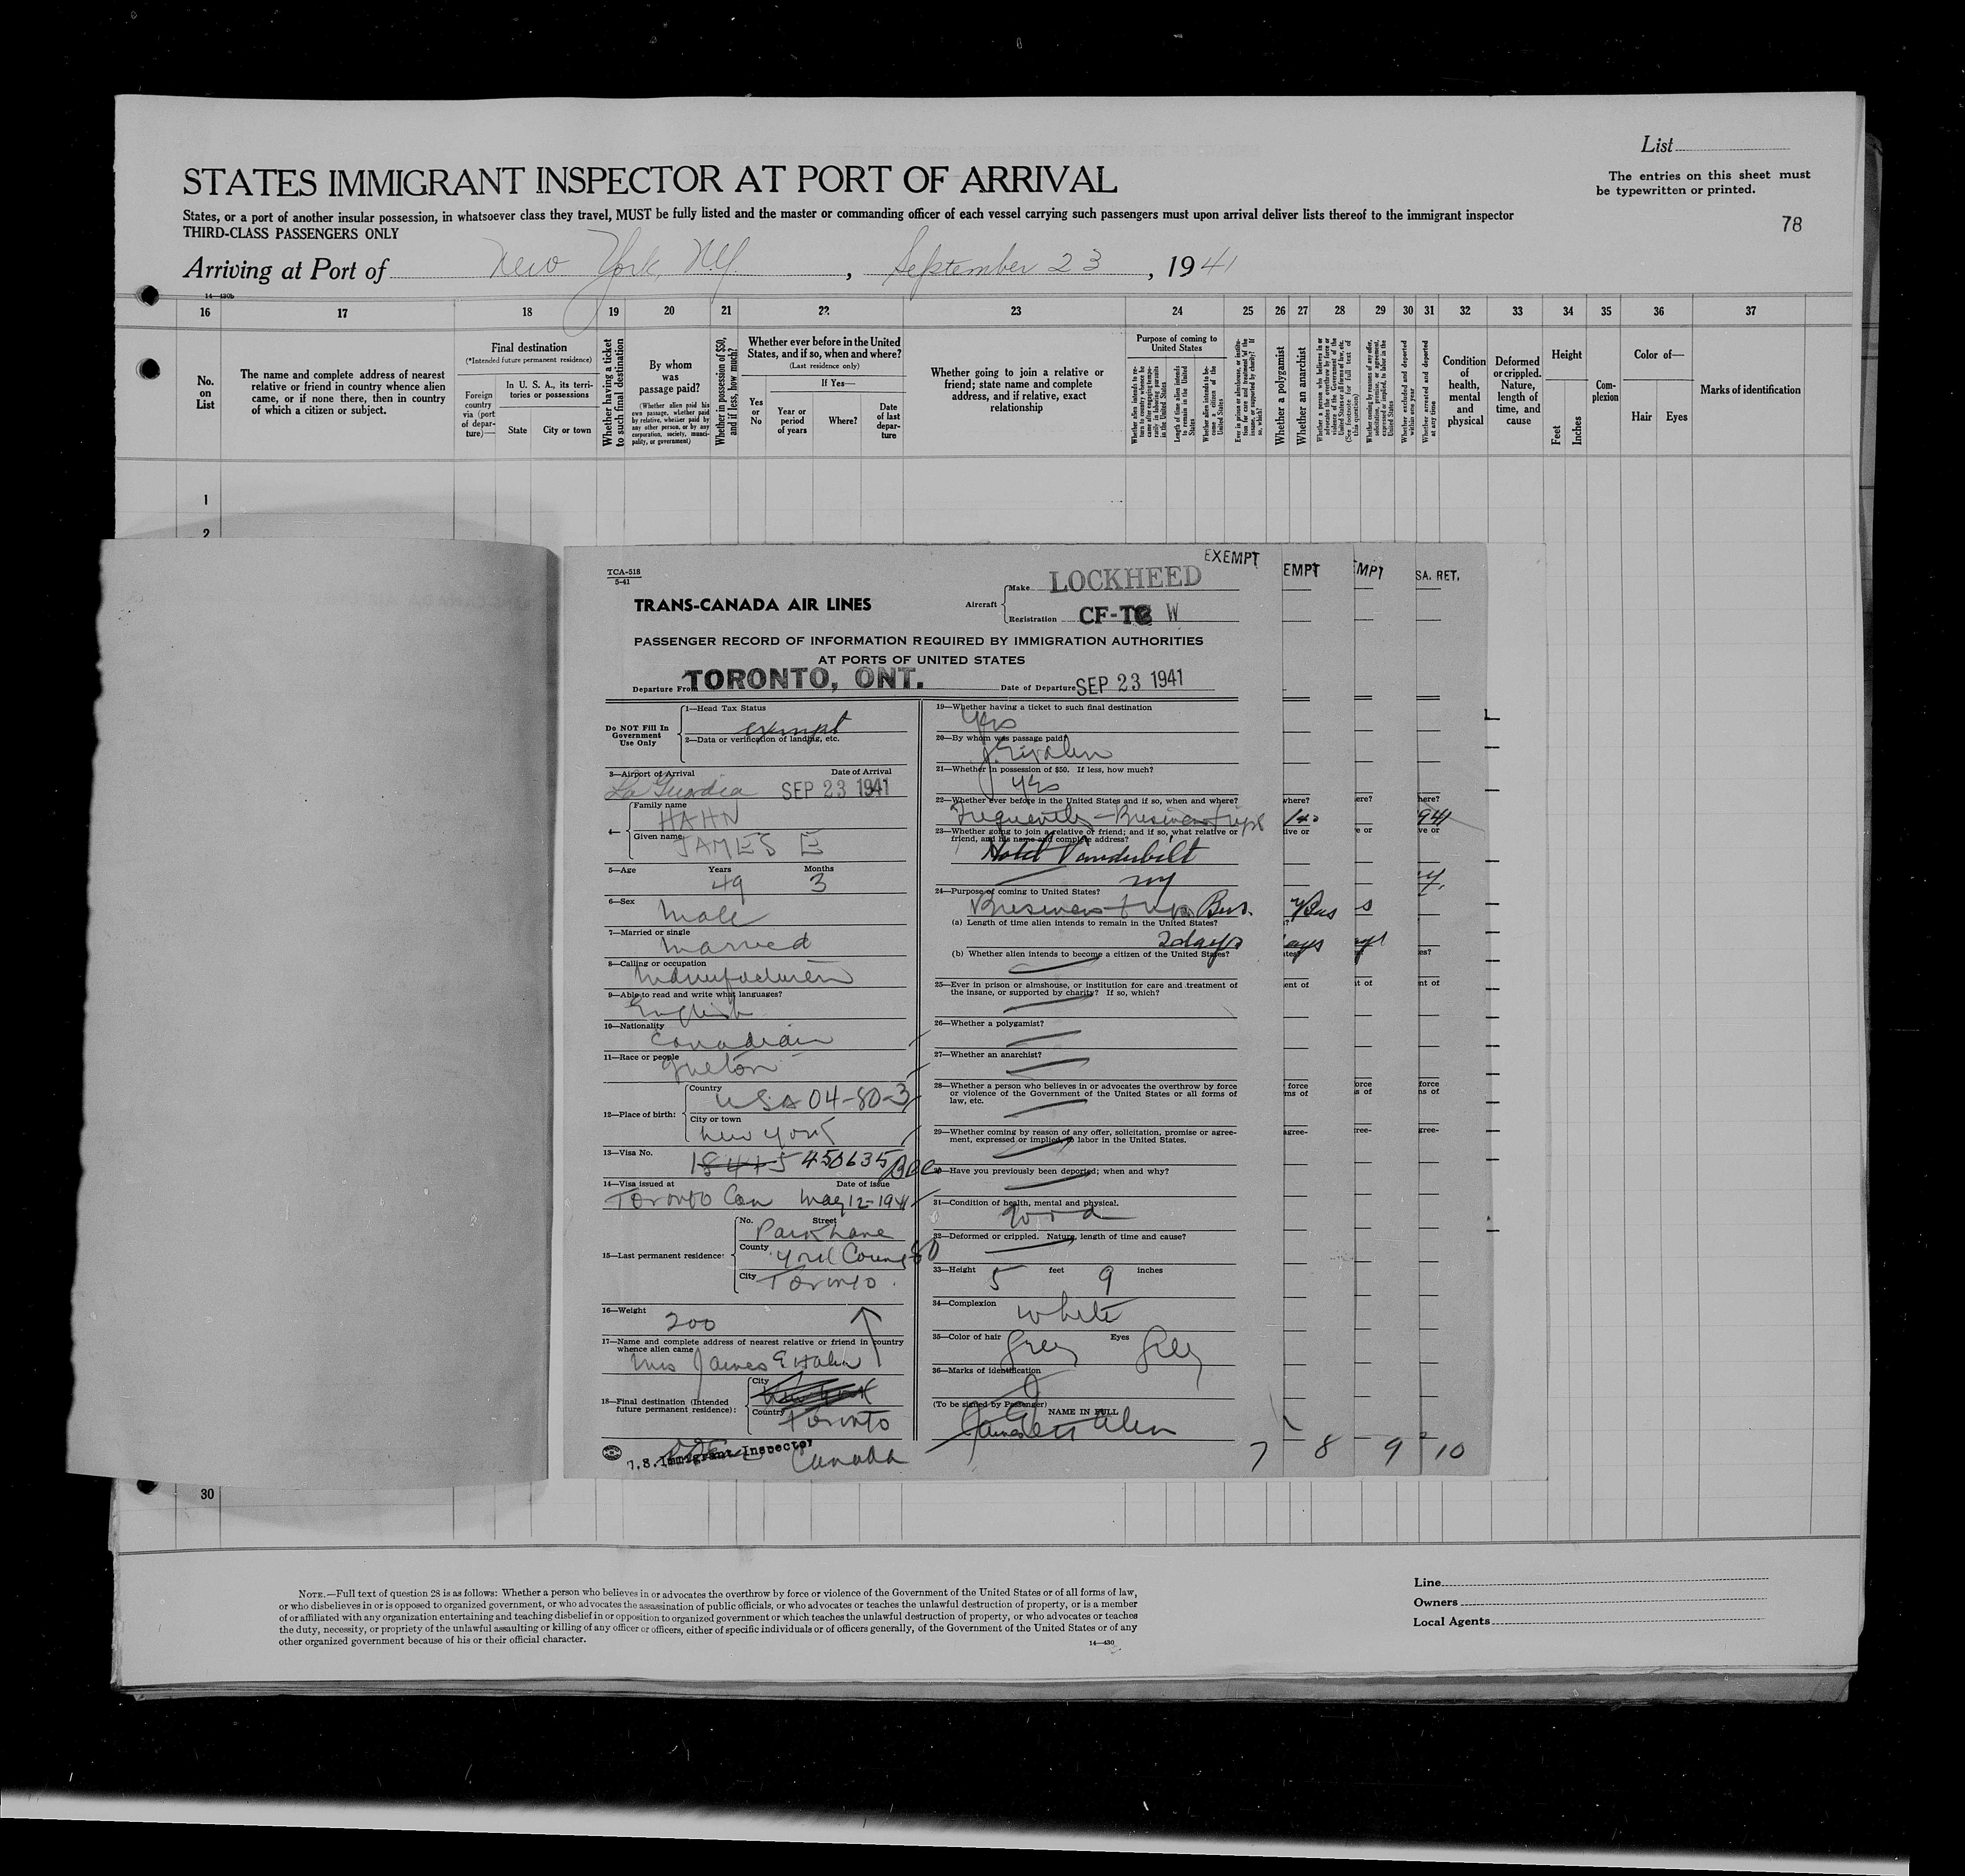 List
STATES IMMIGRANT INSPECTOR AT PORT OF ARRIVAL
The entries on this sheet must
be typewritten or printed.
States, or a port of another insular possession, in whatsoever class they travel, MUST be fully listed and the master or commanding officer of each vessel carrying such passengers must upon arrival deliver lists thereof to the immigrant inspector
THIRD-CLASS PASSENGERS ONLY
78
Arriving at Port of New York, N.Y. , September 23 , 1941
14—430b
16 17 18 19 20 21 22 23 24 25 26 27 28 29 30 31 32 33 34 35 36 37
No. on List
The name and complete address of nearest
relative or friend in country whence alien
came, or if none there, then in country
of which a citizen or subject.
Final destination
(*Intended future permanent residence)
Foreign country via (port of departure)—
In U. S. A., its territories or possessions
State City or town
Whether having a ticket to such final destination
By whom was passage paid?
(Whether alien paid his own passage, whether paid by relative, whether paid by any other person, or by any corporation, society, municipality, or government)
Whether in possession of $50, and if less, how much?
Whether ever before in the United
States, and if so, when and where?
(Last residence only)
Yes or No
If Yes—
Year or period of years
Where?
Date of last departure
Whether going to join a relative or
friend; state name and complete
address, and if relative, exact
relationship
Purpose of coming to United States
Whether alien intends to return to country whence he came after engaging temporarily in laboring pursuits in the United States
Length of time alien intends to remain in the United States
Whether alien intends to become a citizen of the United States
Ever in prison or almshouse, or institution for care and treatment of the insane, or supported by charity? If so, which?
Whether a polygamist
Whether an anarchist
Whether a person who believes in or advocates the overthrow by force or violence of the Government of the United States or all forms of law, etc. (See footnote for full text of this question)
Whether coming by reason of any offer, solicitation, promise, or agreement, expressed or implied, to labor in the United States
Whether excluded and deported within one year
Whether arrested and deported at any time
Condition of health, mental and physical
Deformed or crippled. Nature, length of time, and cause
Height
Feet Inches
Complexion
Color of—
Hair Eyes
Marks of identification
1
2
TCA-518
5-41
TRANS-CANADA AIR LINES
Aircraft
Make LOCKHEED
Registration CF-TC W
EXEMPT
EMPT
EMPT
SA. RET.
PASSENGER RECORD OF INFORMATION REQUIRED BY IMMIGRATION AUTHORITIES
AT PORTS OF UNITED STATES
Departure From TORONTO, ONT. Date of Departure SEP 23 1941
Do NOT Fill In
Government
Use Only
1—Head Tax Status
exempt
2—Data or verification of landing, etc.
3—Airport of Arrival Date of Arrival
La Guardia SEP 23 1941
4—
Family name
HAHN
Given name
JAMES E
5—Age Years Months
49 3
6—Sex
male
7—Married or single
Married
8—Calling or occupation
Manufacturer
9—Able to read and write what languages?
English
10—Nationality
Canadian
11—Race or people
12—Place of birth:
Country
USA 04-80-3
City or town
New York
13—Visa No.
18445 450635
14—Visa issued at Date of issue
Toronto Can May 12-1941
15—Last permanent residence:
No. Street
Park Lane
County
York County
City
Toronto
16—Weight
200
17—Name and complete address of nearest relative or friend in country
whence alien came
Mrs James E Hahn
18—Final destination (Intended
future permanent residence):
City
New York
Country
Toronto
Canada
U.S. Immigrant Inspector
19—Whether having a ticket to such final destination
Yes
20—By whom was passage paid?
21—Whether in possession of $50. If less, how much?
Yes
22—Whether ever before in the United States and if so, when and where?
Frequently - Business trips
23—Whether going to join a relative or friend; and if so, what relative or
friend, and his name and complete address?
Hotel Vanderbilt
NY
24—Purpose of coming to United States?
Business trip Bus.
(a) Length of time alien intends to remain in the United States?
2 days
(b) Whether alien intends to become a citizen of the United States?
25—Ever in prison or almshouse, or institution for care and treatment of
the insane, or supported by charity? If so, which?
26—Whether a polygamist?
27—Whether an anarchist?
28—Whether a person who believes in or advocates the overthrow by force
or violence of the Government of the United States or all forms of
law, etc.
29—Whether coming by reason of any offer, solicitation, promise or agree-
ment, expressed or implied, to labor in the United States.
30—Have you previously been deported; when and why?
31—Condition of health, mental and physical.
Good
32—Deformed or crippled. Nature, length of time and cause?
33—Height 5 feet 9 inches
34—Complexion
White
35—Color of hair Grey Eyes Grey
36—Marks of identification
(To be signed by Passenger)
NAME IN FULL
7 8 9 10
30
NOTE.—Full text of question 28 is as follows: Whether a person who believes in or advocates the overthrow by force or violence of the Government of the United States or of all forms of law,
or who disbelieves in or is opposed to organized government, or who advocates the assassination of public officials, or who advocates or teaches the unlawful destruction of property, or is a member
of or affiliated with any organization entertaining and teaching disbelief in or opposition to organized government or which teaches the unlawful destruction of property, or who advocates or teaches
the duty, necessity, or propriety of the unlawful assaulting or killing of any officer or officers, either of specific individuals or of officers generally, of the Government of the United States or of any
other organized government because of his or their official character.
14—430
Line
Owners
Local Agents